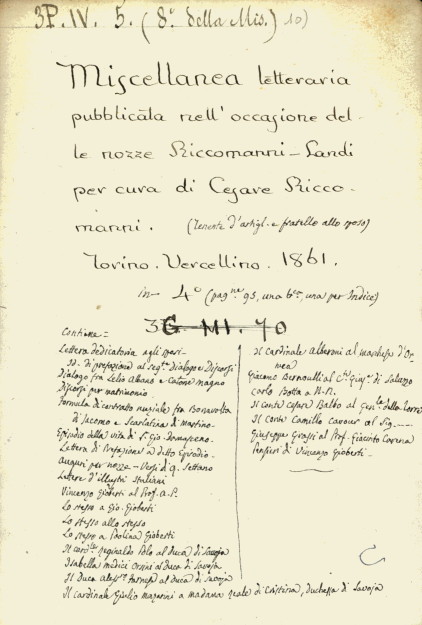 3P. IV. 5. (8º della Mis.) 10)
Miscellanea letteraria
pubblicata nell'occasione del-
le nozze Riccomanni-Landi
per cura di Cesare Ricco-
manni. (Tenente d'artigl. e fratello allo sposo)
Torino. Vercellino. 1861.
in-4º (pagne 93, una bca, una per Indice)
3G. MI. 70
Contiene =
Lettera dedicatoria agli sposi-
Id. di prefazione al segte dialogo e Discorsi
Dialogo fra Lelio Albano e Catone magno
Discorsi per matrimonio
Formula di contratto nuziale fra Bonavolta
di Jacomo e Scarlatina di Martino-
Episodio alla vita di S. Gio. Damasceno-
Lettera di Prefazione a detto Episodio-
Auguri per nozze - Versi di Q. Settano
Lettere d'illustri Italiani
Vincenzo Gioberti al Prof. A. P.
Lo stesso a Gio. Gioberti
Lo stesso allo stesso
Lo stesso a Paolina Gioberti
Il cardle Reginaldo Polo al Duca di Savoja
Isabella Medici Orsini al Duca di Savoja
Il Duca Alessro Farnese al Duca di Savoja
Il Cardinale Giulio Mazarini a Madama Reale di Cristina, Duchessa di Savoja
Il Cardinale Alberoni al marchese d'Or-
mea
Giacomo Bernoulli al Cte Giuse di Saluzzo
Carlo Botta a N. N.
Il Conte Cesare Balbo al Genle della Torre
Il Conte Camillo Cavour al Sig ----
Giuseppe Grassi al Prof. Giacinto Carena
Pensieri di Vincenzo Gioberti-